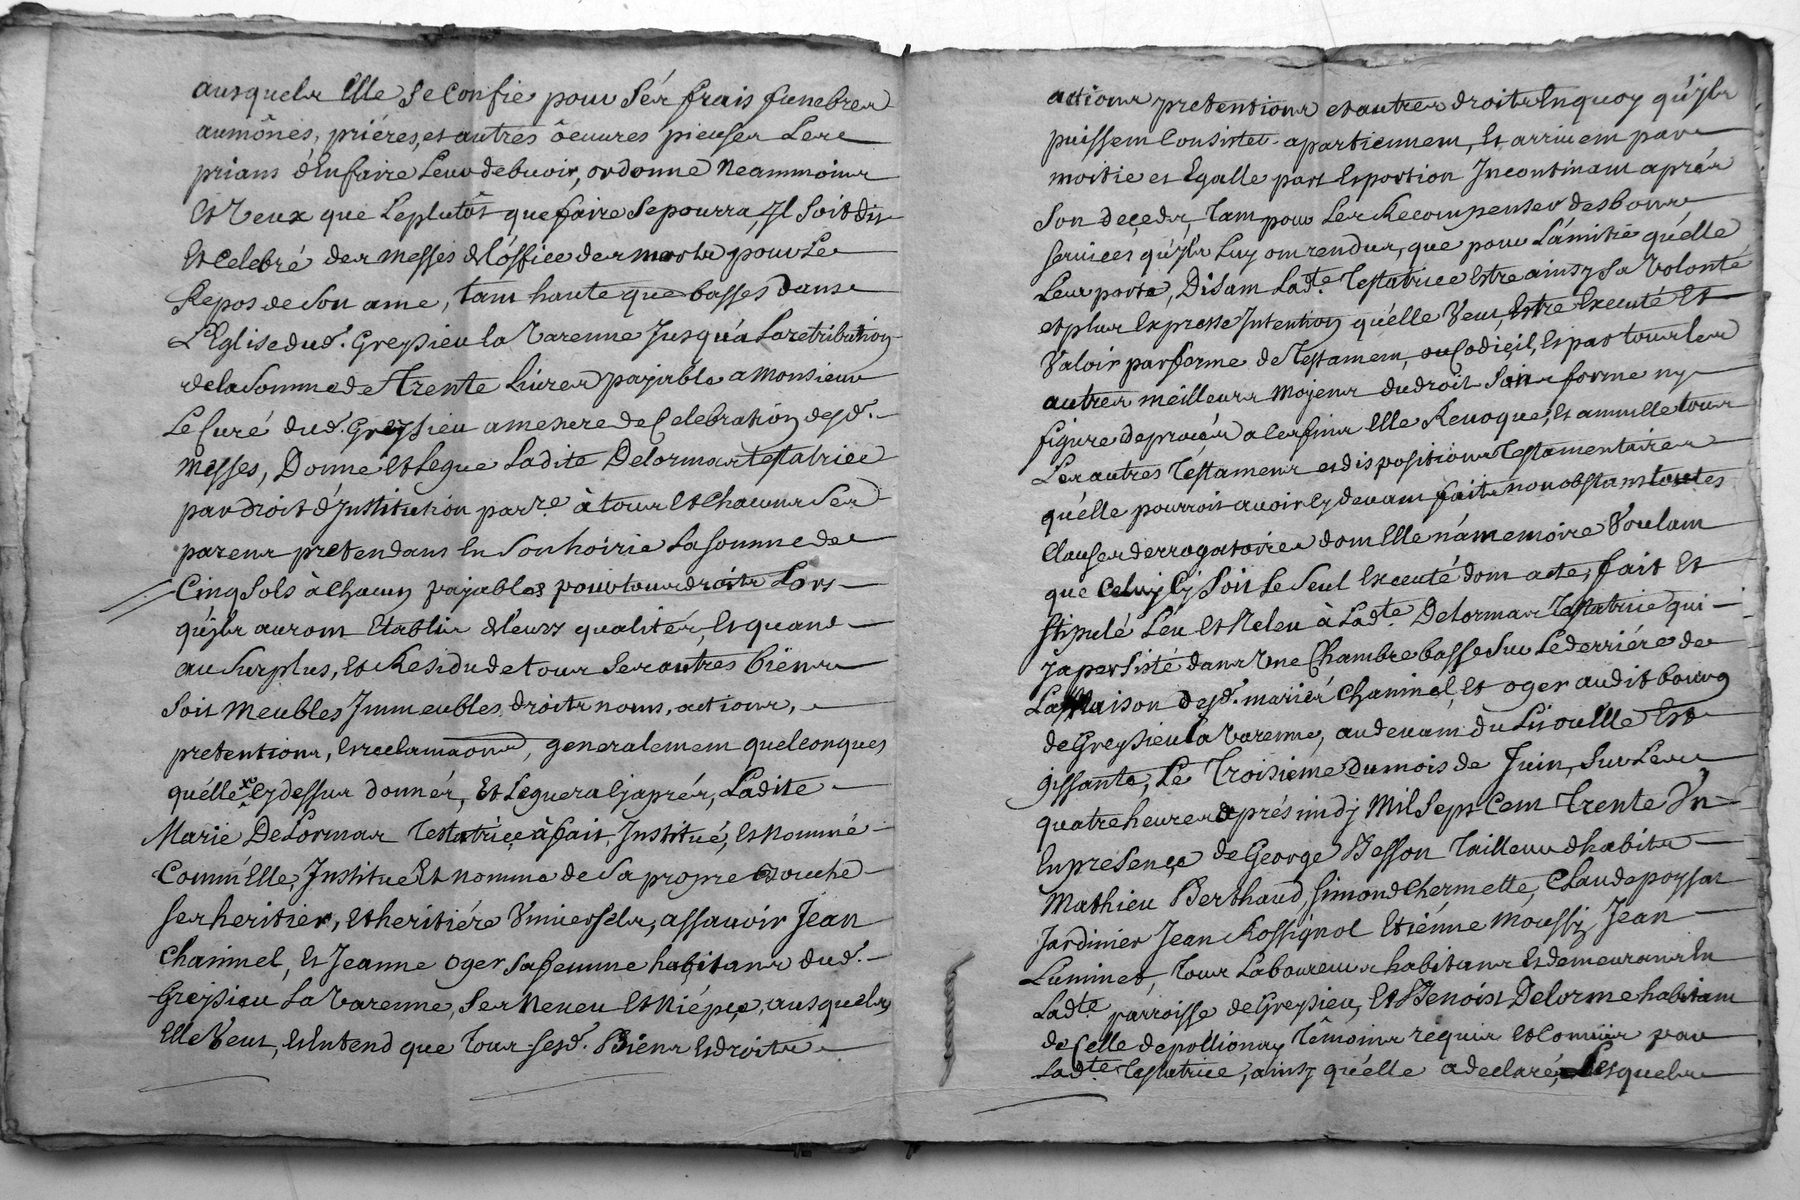 ausquels Elle se confie pour sés frais funebres
aumônes, priéres, et autres oeuvres pieuses Les
priant d'En faire Leur debvoir, ordonne Neammoins
Et Veux que Leplutôt que faire sepourra, Jl soit dit
Et Celebré des Messes & l'óffice des morts pour Le
Repos de Son ame, tant haute que basses dans
L'Eglise dud. Greysieu la Varenne Jusqu'a La retribution
de la Somme de Trente Livres payable a Monsieur
Le Curé dud. Greysieu a mesure de Celebration desd.
Messes, Donne Et Legue Ladite Delormas testatrice
par droit d'Jnstitution par.re à tous Et Chacuns Ses
parens pretendans En Son hoirie La somme de
Cinq Sols à Chacun payables pour tous droits Lors
qu'jls auront Etablis & leurs qualités, Et quand
au Surplus, Et Residu de tous Ses autres biens
Soit Meubles Jmmeubles, droits noms, actions,
pretentions, Et reclamaons, generalement quelconques
qu'élle x Cy dessus donnés, Et Leguera Cj aprés, Ladite
Marie DeLormas Testatriçe à fait, Jnstitué, Et Nommé
Comm'Elle, Jnstitue Et nomme de Sa propre Bouche
Ses heritier, Et heritiére Vniversels, assavoir Jean
Chaninel, Et Jeanne Oger Sa femme habitans dud.
Greysieu La Varenne, Ses Neveu Et Niépçe, ausquels
Elle Veut, Et Entend que Tous sesd. Biens Et droits
actions pretentions et autres droits En quoy qu'jls
puissent Consister, apartiennent, Et arrivent par
moitie et Egalle part Et portion Jncontinant aprés
Son deçeds, Tant pour Les Recompenser des bons
services qu'jls Luy ont rendus, que pour L'ámitié qu'élle
Leur porte, Disant Lad.te Testatrice Estre ainsy Sa Volonté
et plus Expresse Jntention qu'élle Veut, Estre Executé Et
Valoir par forme de Testament, ou Codiçil, Et par tous les
autres meilleurs Moyens du droit Sans forme ny
figure de procés a Ces fins Elle Revoque, Et annulle tous
Les autres Testamens et dispositions Testamentaires
qu'élle pourroit avoir Cy devant faits nonobstant toutes
Clauses derrogatoires dont Elle n'a memoire Voulant
que Celuy Cy Soit Le Seul Executé dont acte, fait Et
Stipulé Leu Et Releu à Lad.te Delormas Testatrice qui
y a persisté dans Vne Chambre basse Sur Le derriére de
La Maison desd. mariés Chaninel, Et Oger audit bourg
de Greysieu la Varenne, au devant du Lit ou Elle Est
gissante, Le Troisiéme du mois de Juin, Sur Les
quatre heures aprés midj Mil Sept Cent Trente Vn
En presençe de George Besson Tailleur d'habits
Mathieu Berthaud, Simond Chermette, Claude poyssat
Jardinier Jean Rossignol Etiénne Moussy Jean
Luminet, Tous Laboureurs habitans Et demeurans En
Lad.te parroisse de Greysieu, Et Benoist Delorme habitant
de Celle de pollionay Témoins requis Et Commis par
Lad.te Testatrice, ainsy qu'élle a declaré, Lesquels